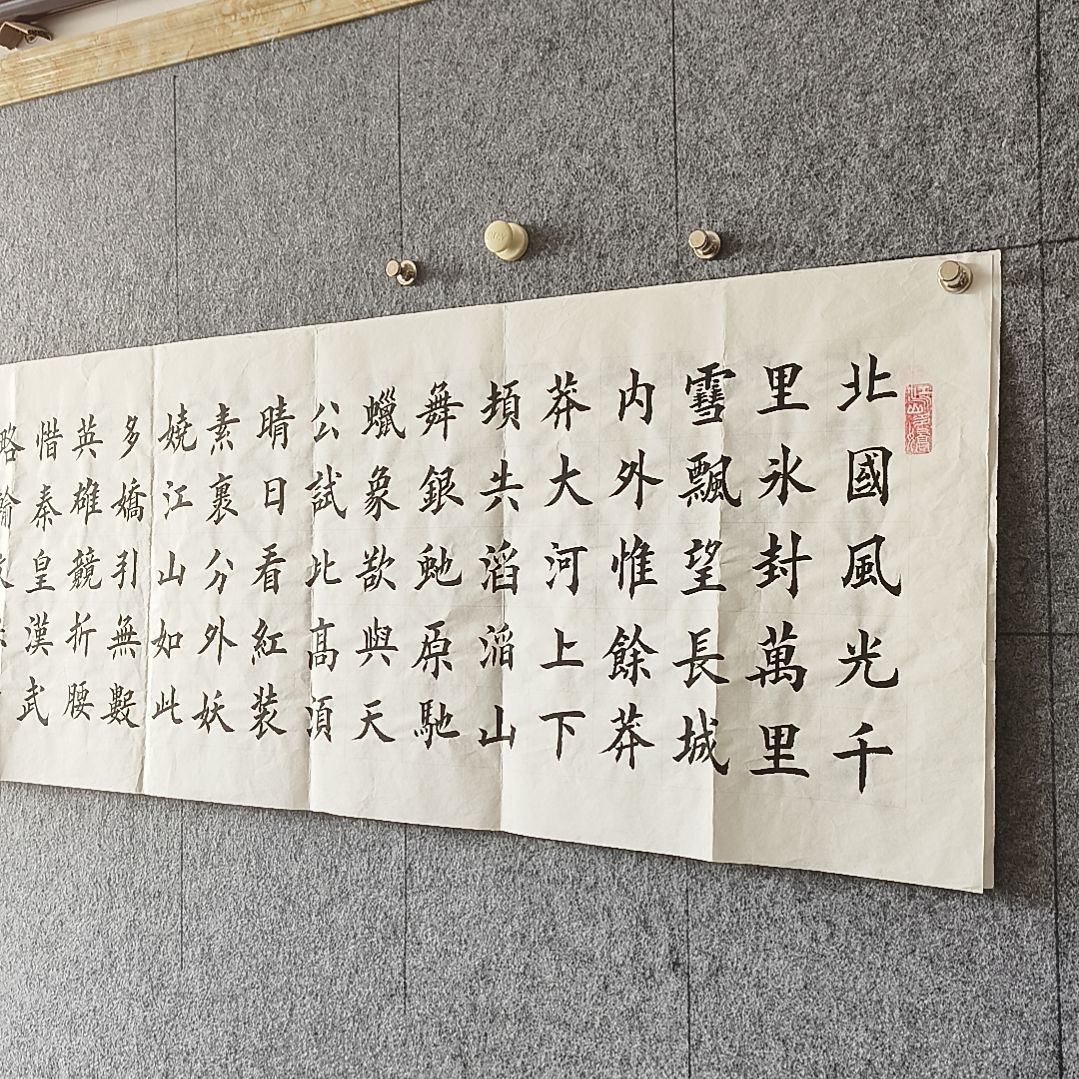 北國風光千
里氷封萬里
雪飄望長城
内外惟餘莽
莽大河上下
頓失滔滔山
舞銀虵原馳
蠟象欲與天
公試比高須
晴日看紅装
素裹分外妖
嬈江山如此
多嬌引無數
英雄競折腰
惜秦皇漢武
略輸